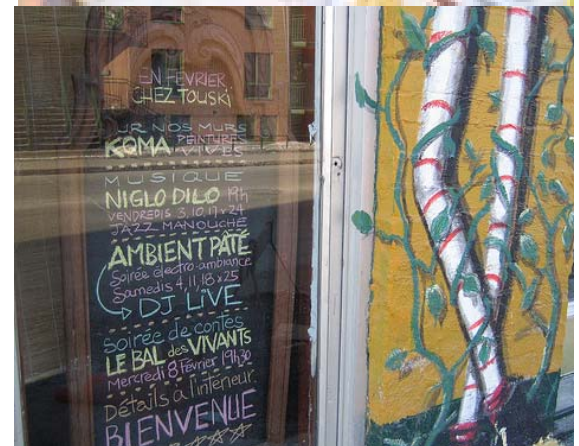 EN FÉVRIER
CHEZ TOUSKI
SUR NOS MURS
KOMA PEINTURES
VIVES
MUSIQUE
NIGLO DILO 19h
VENDREDIS 3, 10, 17 x 24
JAZZ MANOUCHE
AMBIENT PATÉ
Soirée électro-ambiance
Samedis 4, 11, 18 x 25
DJ LIVE
Soirée de contes
LE BAL des VIVANTS
Mercredi 8 Février 19h30
Détails à l'intérieur.
BIENVENUE